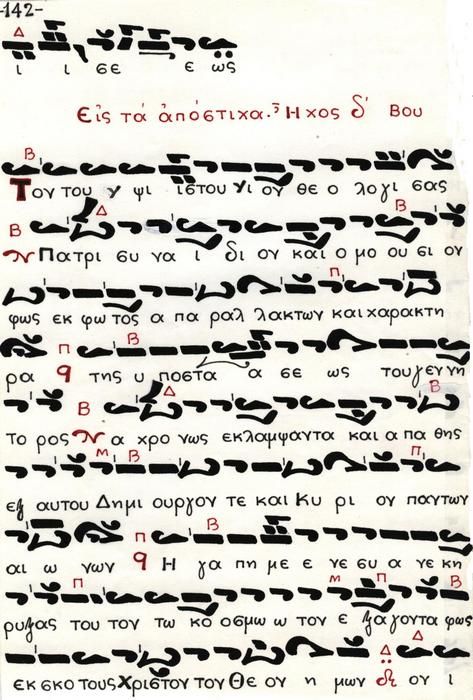 -142-
Δ
ι ι σε ε ως
Εἰς τά ἀπόστιχα. Ἦχος δ' Βου
Β
Του του υ ψι ιστου υι ον θε ο λογι σας
Β Δ Β
Πατρι συ να ι δι ον και ο μο ου σι ον
π
φως εκ φω τος α πα ραλ λακτων και χαρακτη
π Β
ρα q της υ ποστα α σε ως του γεννη
Β Δ Β
το ρος α χρο νως εκλαμψαντα και α πα θης
Μ Β π
εξ αυτου Δημι ουργον τε και Κυ ρι ον παντων
π Β
αι ω νων q Η γα πη με ε νε συ α νε κη
π Μ π Β
ρυξας του τον τω κο οσμω ω τον ε ξα γοντα φως
Δ Δ
εκ σκο τους Χριστον τον Θε ον η μων ον ι